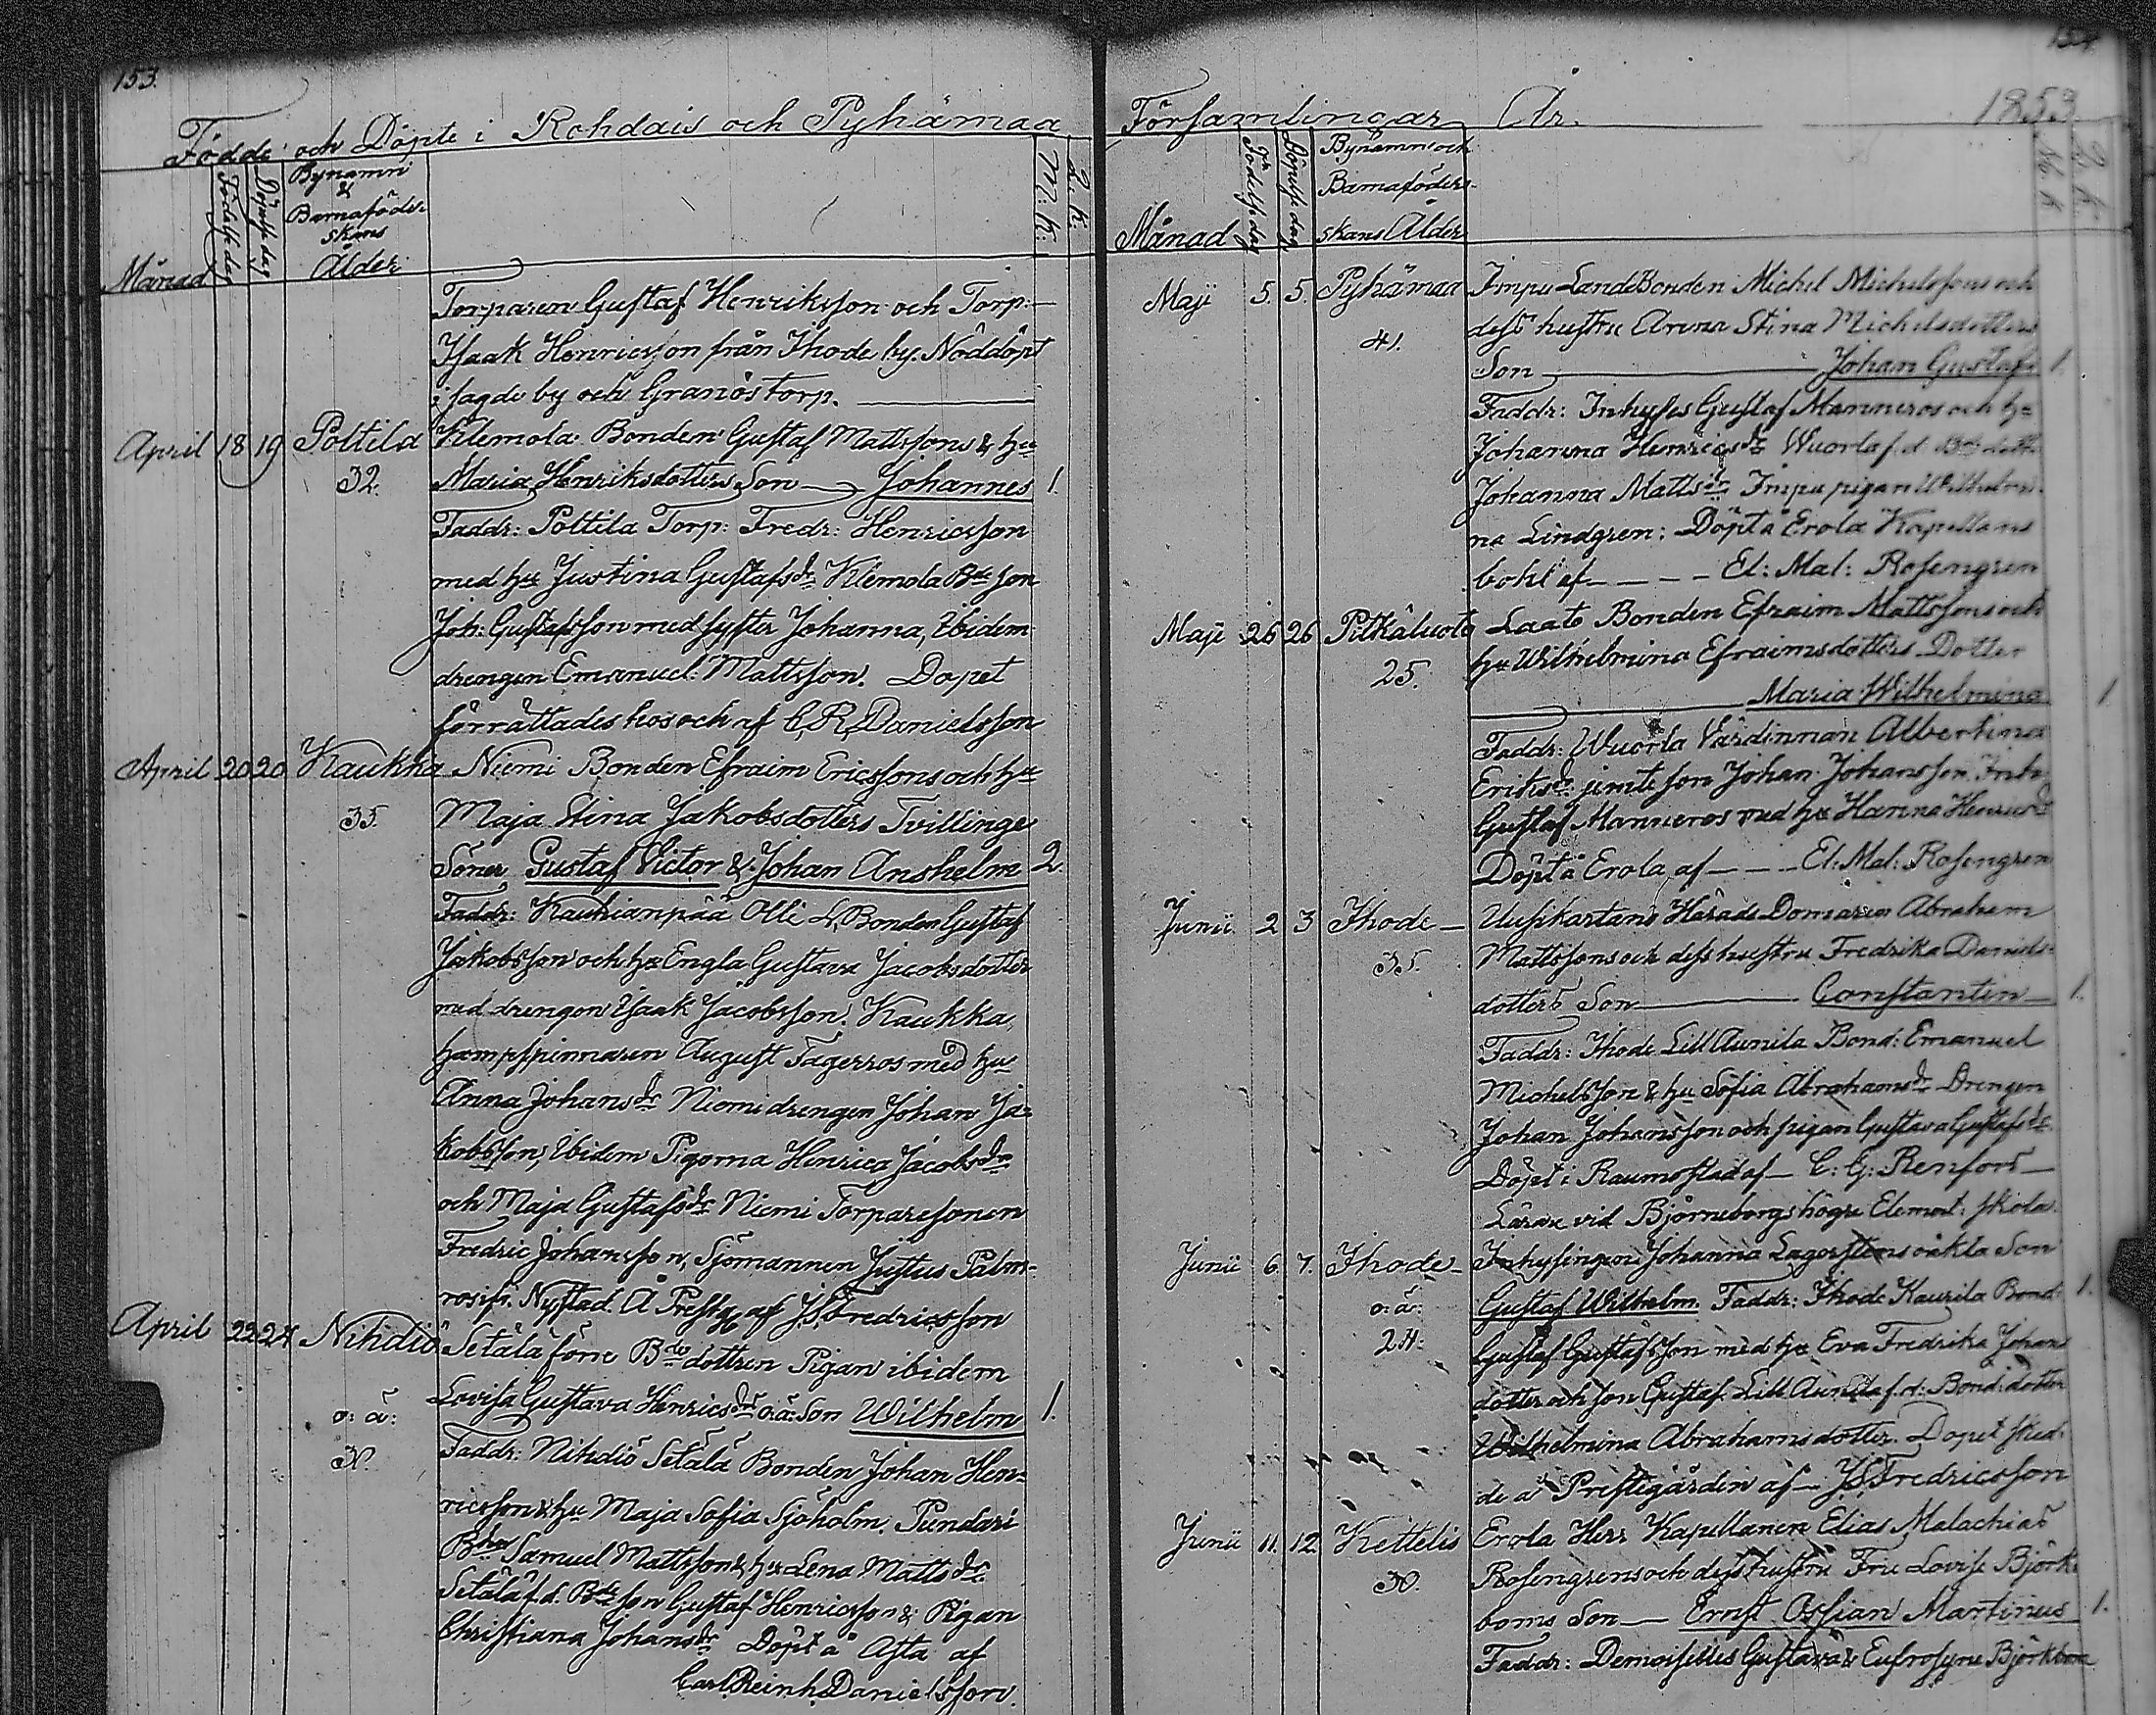 153.
Födde och Döpte i Rohdais och Pyhämaa
Månad
Födelse dag
Döpelse dag
Bynamn
&
Barnaföder-
skans
Ålder
M: K:
Q: K:
Torparen Gustaf Henriksson och Torp:
Isaak Henricsson från Ihode by. Nöddöpt
i sagde by och Granös torp.
April 18 19 Poltila Klemola Bonden Gustaf Mattssons & hu
32. Maria Henriksdotters Son Johannes 1.
Faddr: Poltila Torp: Fredr: Henricsson
med hu Justina Gustafsdr Klemola Bde son
Joh: Gustafsson med syster Johanna, Ibidem
drengen Emanuel Mattsson. Dopet
förrättades hos och af C. R. Danielsson
April 20 20 Kaukka Niemi Bonden Efraim Ericssons och hu
35. Maja Stina Jakobsdotters Tvillinge
Söner Gustaf Victor & Johan Anshelm 2.
Faddr: Kaukianpää Olli Bonden Gustaf
Jakobsson och hu Engla Gustava Jacobsdotter
med drengen Isaak Jacobsson. Kaukka
hampspinnaren August Fagerros med hu
Anna Johansdr Niemi drengen Johan Ja-
kobsson, Ibidem Pigorna Henrica Jacobsdr
och Maja Gustafsdr Niemi Torparesonen
Fredric Johansson, Sjömannen Justus Palm-
ros ifr. Nystad. Å Prestg af J S Fredricsson
April 23 24 Nihdiö Setälä förre Bde dottren Pigan ibidem
o: ä: Lovisa Gustava Henricsdrs o:ä: Son Wilhelm 1.
30. Faddr: Nihdiö Setälä Bonden Johan Hen-
ricsson & hu Maja Sofia Sjöholm. Pundari
Bden Samuel Mattsson & hu Lena Mattsdr
Setälä f.d. Bde son Gustaf Henricsson & Pigan
Christiana Johansdr Döpt å Asta af
Carl Reinh. Danielsson.
154.
Församlingar År. 1853
Månad
Födelse dag
Döpelse dag
Bynamn och
Barnaföder-
skans Ålder
M. K
Q. K.
Maji 5. 5. Pyhämaa Impu LandBonden Michel Michelssons och
41. dess hustru Anna Stina Michelsdotters
Son Johan Gustaf 1.
Faddr: Inhyses Gustaf Manneros och hu
Johanna Henricsdr Wuorla f.d. Bde dottr
Johanna Mattsdr Impu pigan Wilhelmi-
na Lindgren: Döpt å Erola Kapellans
bohl af El: Mal: Rosengren
Maji 26 26 Pitkäluoto Laato Bonden Efraim Mattssons och
25. hu Wilhelmina Efraimsdotters Dotter
Maria Wilhelmina 1
Faddr: Wuorla Värdinnan Albertina
Eriksdr jemte son Johan Johansson. Inh:
Gustaf Manneros med hu Hanna Henricsdr
Döpt å Erola af El: Mal: Rosengren
Junii 2 3 Ihode Uusikartano HäradsDomaren Abraham
35. Mattssons och dess hustru Fredrika Daniels-
dotters Son Constantin 1.
Faddr: Ihode Lill Aunila Bond: Emanuel
Michelsson & hu Sofia Abrahamsdr Drengen
Johan Johansson och pigan Gustava Gustafsdr
Döpt i Raumo stad af C: G: Renfors
Lärare vid Björneborgs högre Element: skola.
Junii 6. 7. Ihode Inhysingen Johanna Lagerstens oäkta Son
o: ä: Gustaf Wilhelm. Faddr: Ihode Kaurila Bond: 1.
24: Gustaf Gustafsson med hu Eva Fredrika Johans
dotter och son Gustaf. Lill Aunila f.d: Bond: dotter
Wilhelmina Abrahamsdotter. Dopet sked-
de å Prestegården af J S Fredricsson
Junii 11. 12. Kettelis Erola Herr Kapellanen Elias Malachias
30. Rosengrens och dess hustru Fru Lovise Björk-
boms Son Ernst Ossian Martinus 1.
Faddr: Demoiselles Gustava & Eufrosyne Björkbom